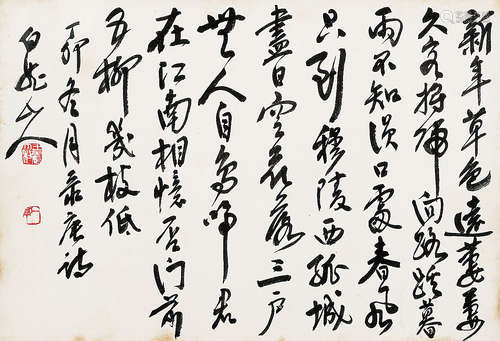 新年草色遠萋萋
久客將歸問路蹊暮
雨不知溳口處春風
只到穆陵西孤城
盡日空花落三戶
無人自鳥啼君
在江南相憶否門前
五柳幾枝低
丁卯冬月录唐詩
白龍山人